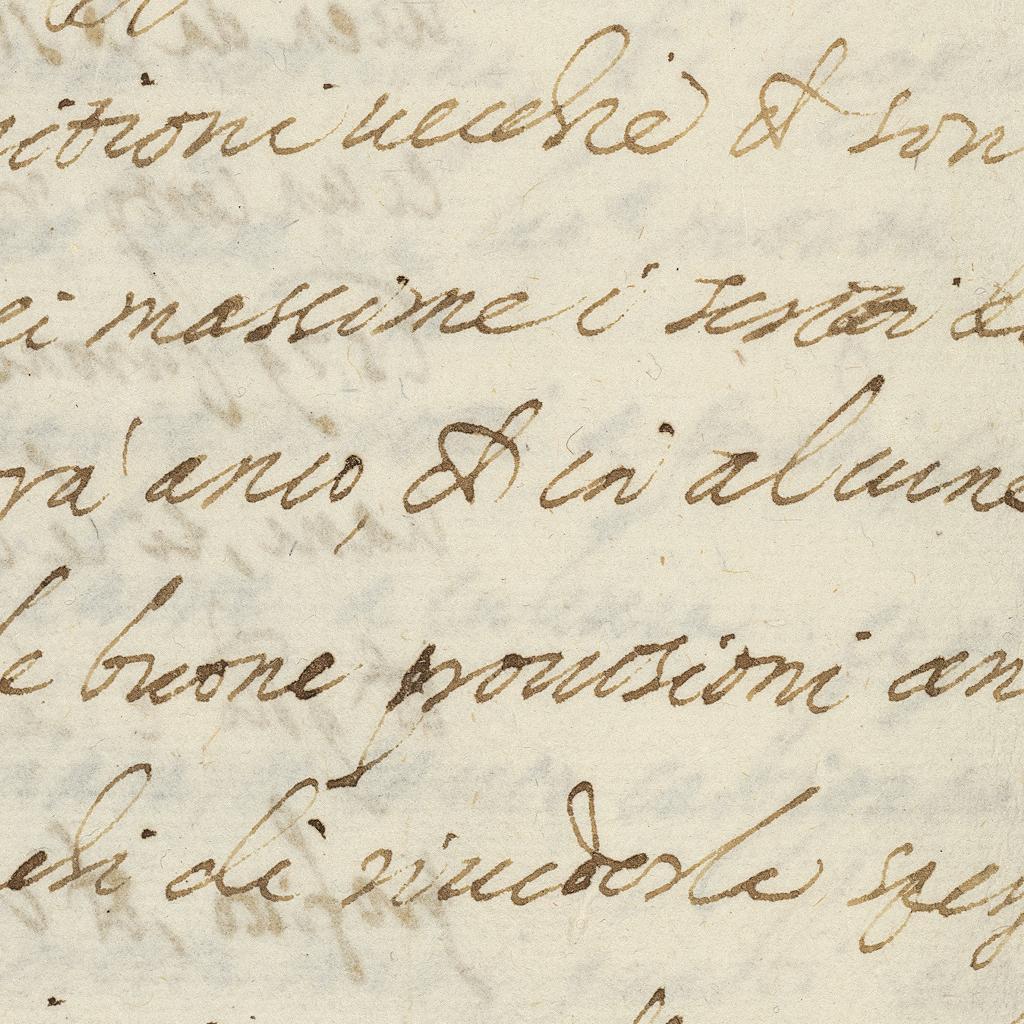 itioni uecchie & son
ei massime i sestai de
rà anco, & in alcune
le buone prouisioni an
chi di riuederla spess